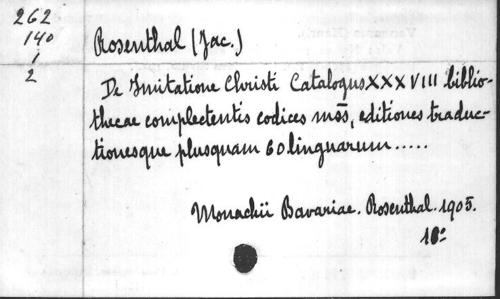 262
140
1
2
Rosenthal (Jac.)
De Imitatione Christi Catalogus XXXVIII biblio-
thecae complectentis codices mss, editiones traduc-
tionesque plusquam 60 linguarum .....
Monachii Bavariae. Rosenthal. 1905.